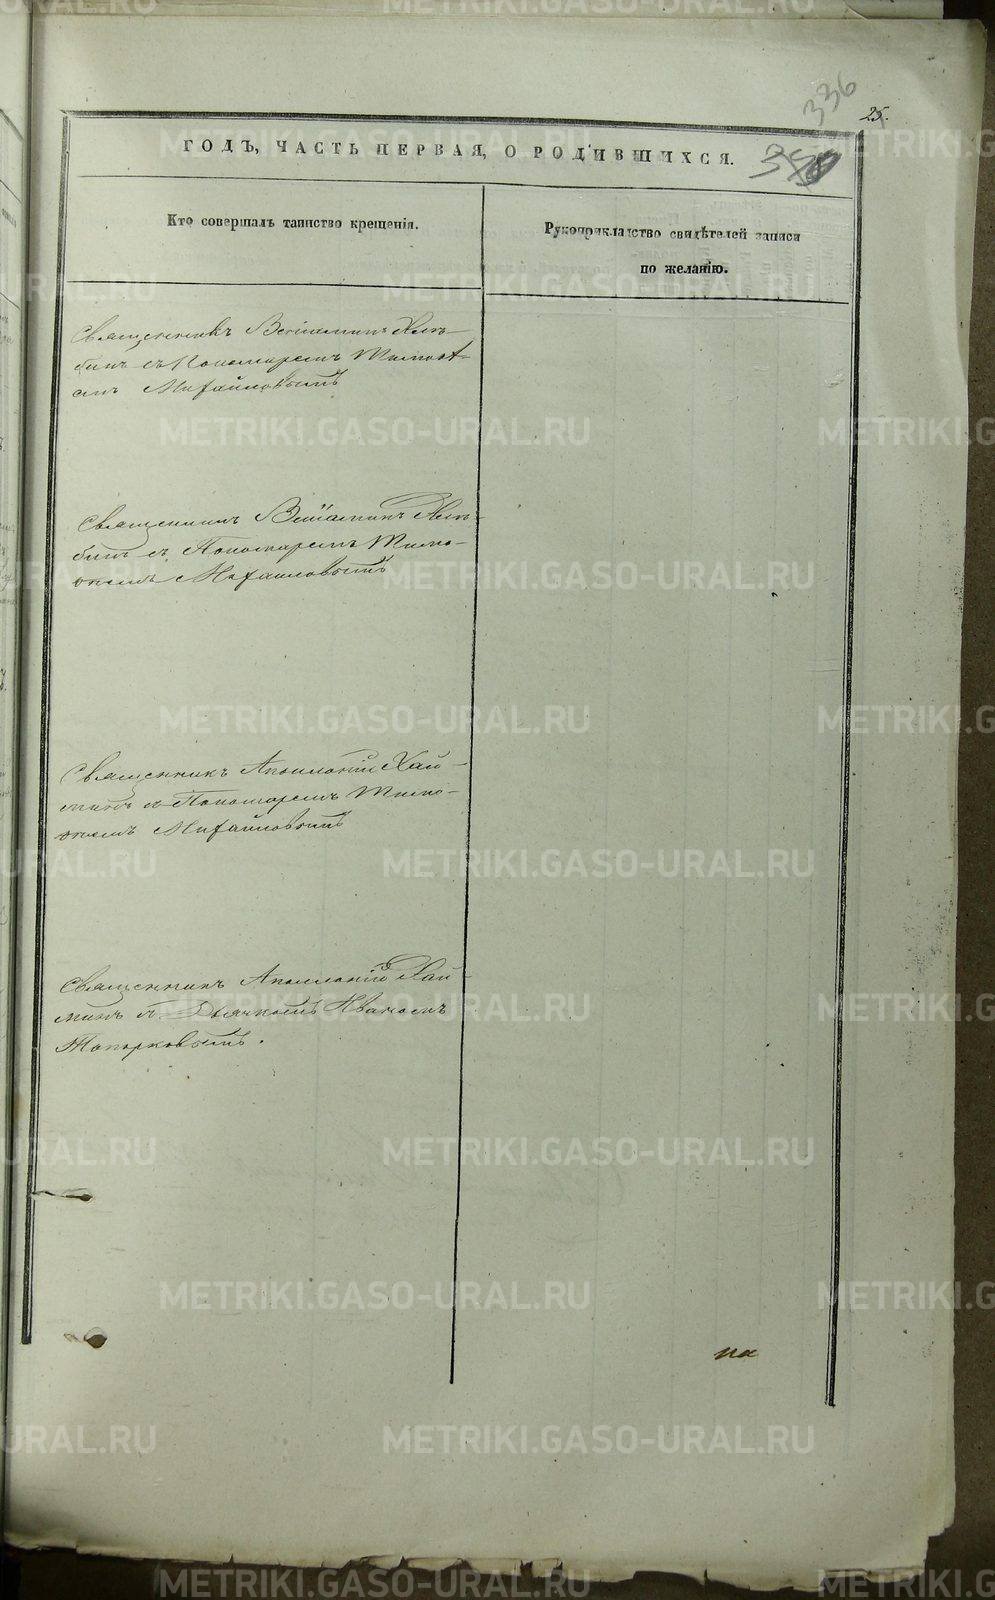 336
25.
ГОДЪ, ЧАСТЬ ПЕРВАЯ, О РОДИВШИХСЯ.
Кто совершалъ таинство крещенія.
Рукоприкладство свидѣтелей записи
по желанію.
Священникъ Веніаминъ Хлѣ-
бинъ съ Пономаремъ Тимоѳѣ-
емъ Михайловымъ
Священникъ Веніаминъ Хлѣ-
бинъ съ Пономаремъ Тимо-
ѳеемъ Михаиловымъ
Священникъ Аполлоній Хай-
минъ съ Пономаремъ Тимо-
ѳеемъ Михайловымъ
Священникъ Аполлоній Хай-
минъ съ Дьячкомъ Иваномъ
Топорковымъ.
на
METRIKI.GASO-URAL.RU